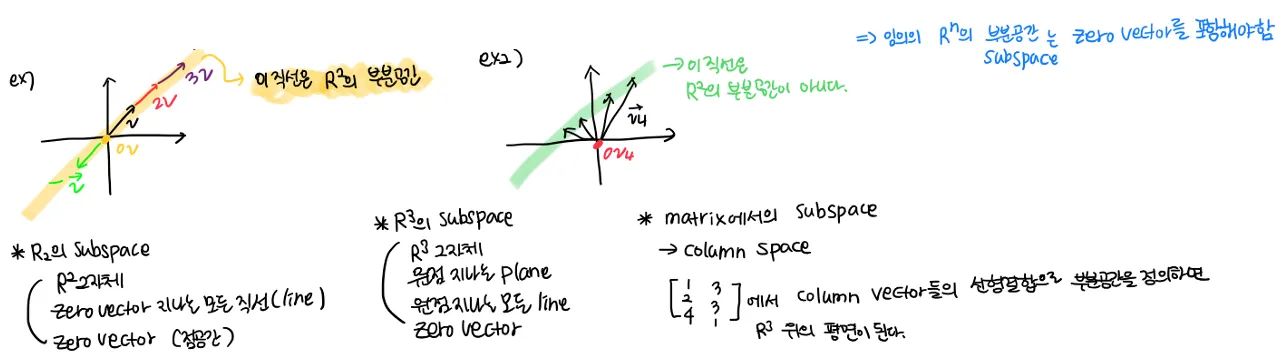 ⇒ 임의의 Rⁿ의 부분공간는 zero vector를 포함해야함
subspace
ex)
3v
2v
v
0v
-v
이 직선은 R²의 부분공간
ex2)
→ 이 직선은
R²의 부분공간이 아니다.
v4
0v4
* R₂의 subspace
R² 그자체
zero vector 지나는 모든 직선(line)
zero vector (점공간)
* R³의 subspace
R³ 그자체
원점 지나는 plane
원점 지나는 모든 line
zero vector
* matrix에서의 subspace
→ column space
1 3
2 3
4 1
에서 column vector들의 선형결합으로 부분공간을 정의하면
R³ 위의 평면이 된다.